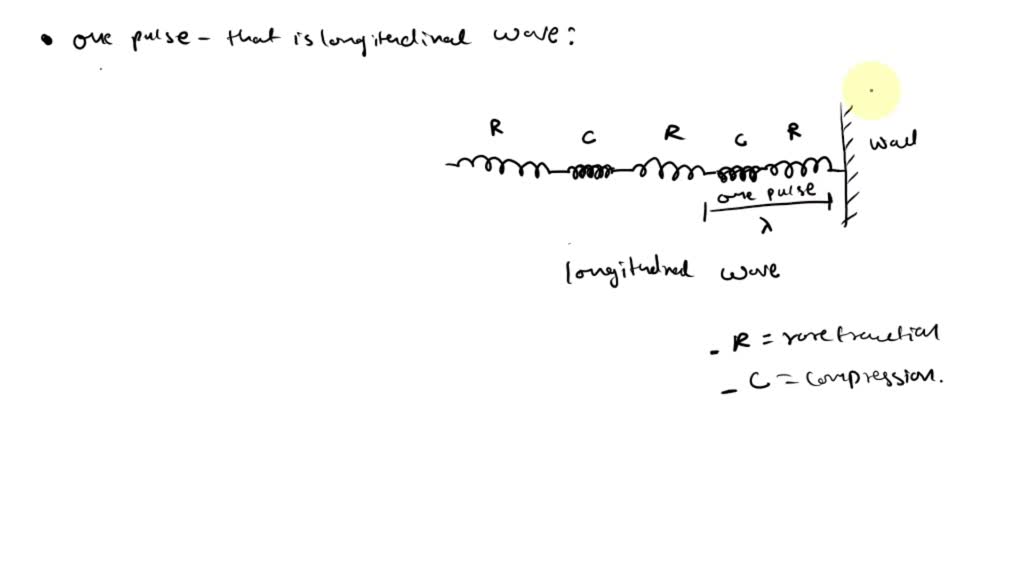 • one pulse - that is longitudinal wave:
R C R C R
wall
one pulse
λ
longitudinal wave
- R = rarefraction
- C = compression.